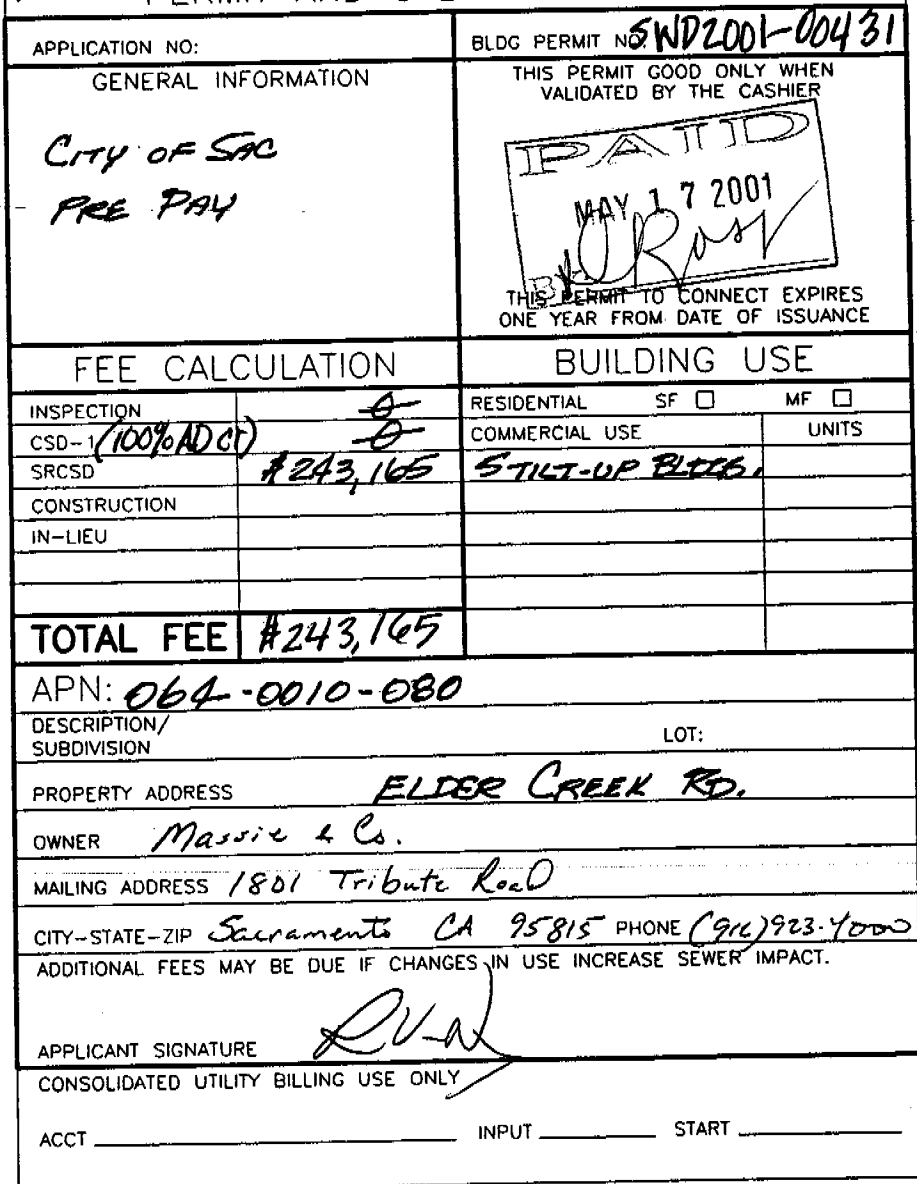 APPLICATION NO:
BLDG PERMIT NO: SWD2001-00431
GENERAL INFORMATION
CITY OF SAC
PRE PAY
THIS PERMIT GOOD ONLY WHEN
VALIDATED BY THE CASHIER
PAID
MAY 17 2001
BY
THIS PERMIT TO CONNECT EXPIRES
ONE YEAR FROM DATE OF ISSUANCE
FEE CALCULATION
INSPECTION 0
CSD-1 (100% AD CT) 0
SRCSD $243,165
CONSTRUCTION
IN-LIEU
TOTAL FEE $243,165
BUILDING USE
RESIDENTIAL SF ☐ MF ☐
COMMERCIAL USE UNITS
5 TILT-UP BLDGS.
APN: 064-0010-080
DESCRIPTION/
SUBDIVISION LOT:
PROPERTY ADDRESS ELDER CREEK RD.
OWNER Massie & Co.
MAILING ADDRESS 1801 Tribute Road
CITY-STATE-ZIP Sacramento CA 95815 PHONE (916) 923-4000
ADDITIONAL FEES MAY BE DUE IF CHANGES IN USE INCREASE SEWER IMPACT.
APPLICANT SIGNATURE
CONSOLIDATED UTILITY BILLING USE ONLY
ACCT INPUT START